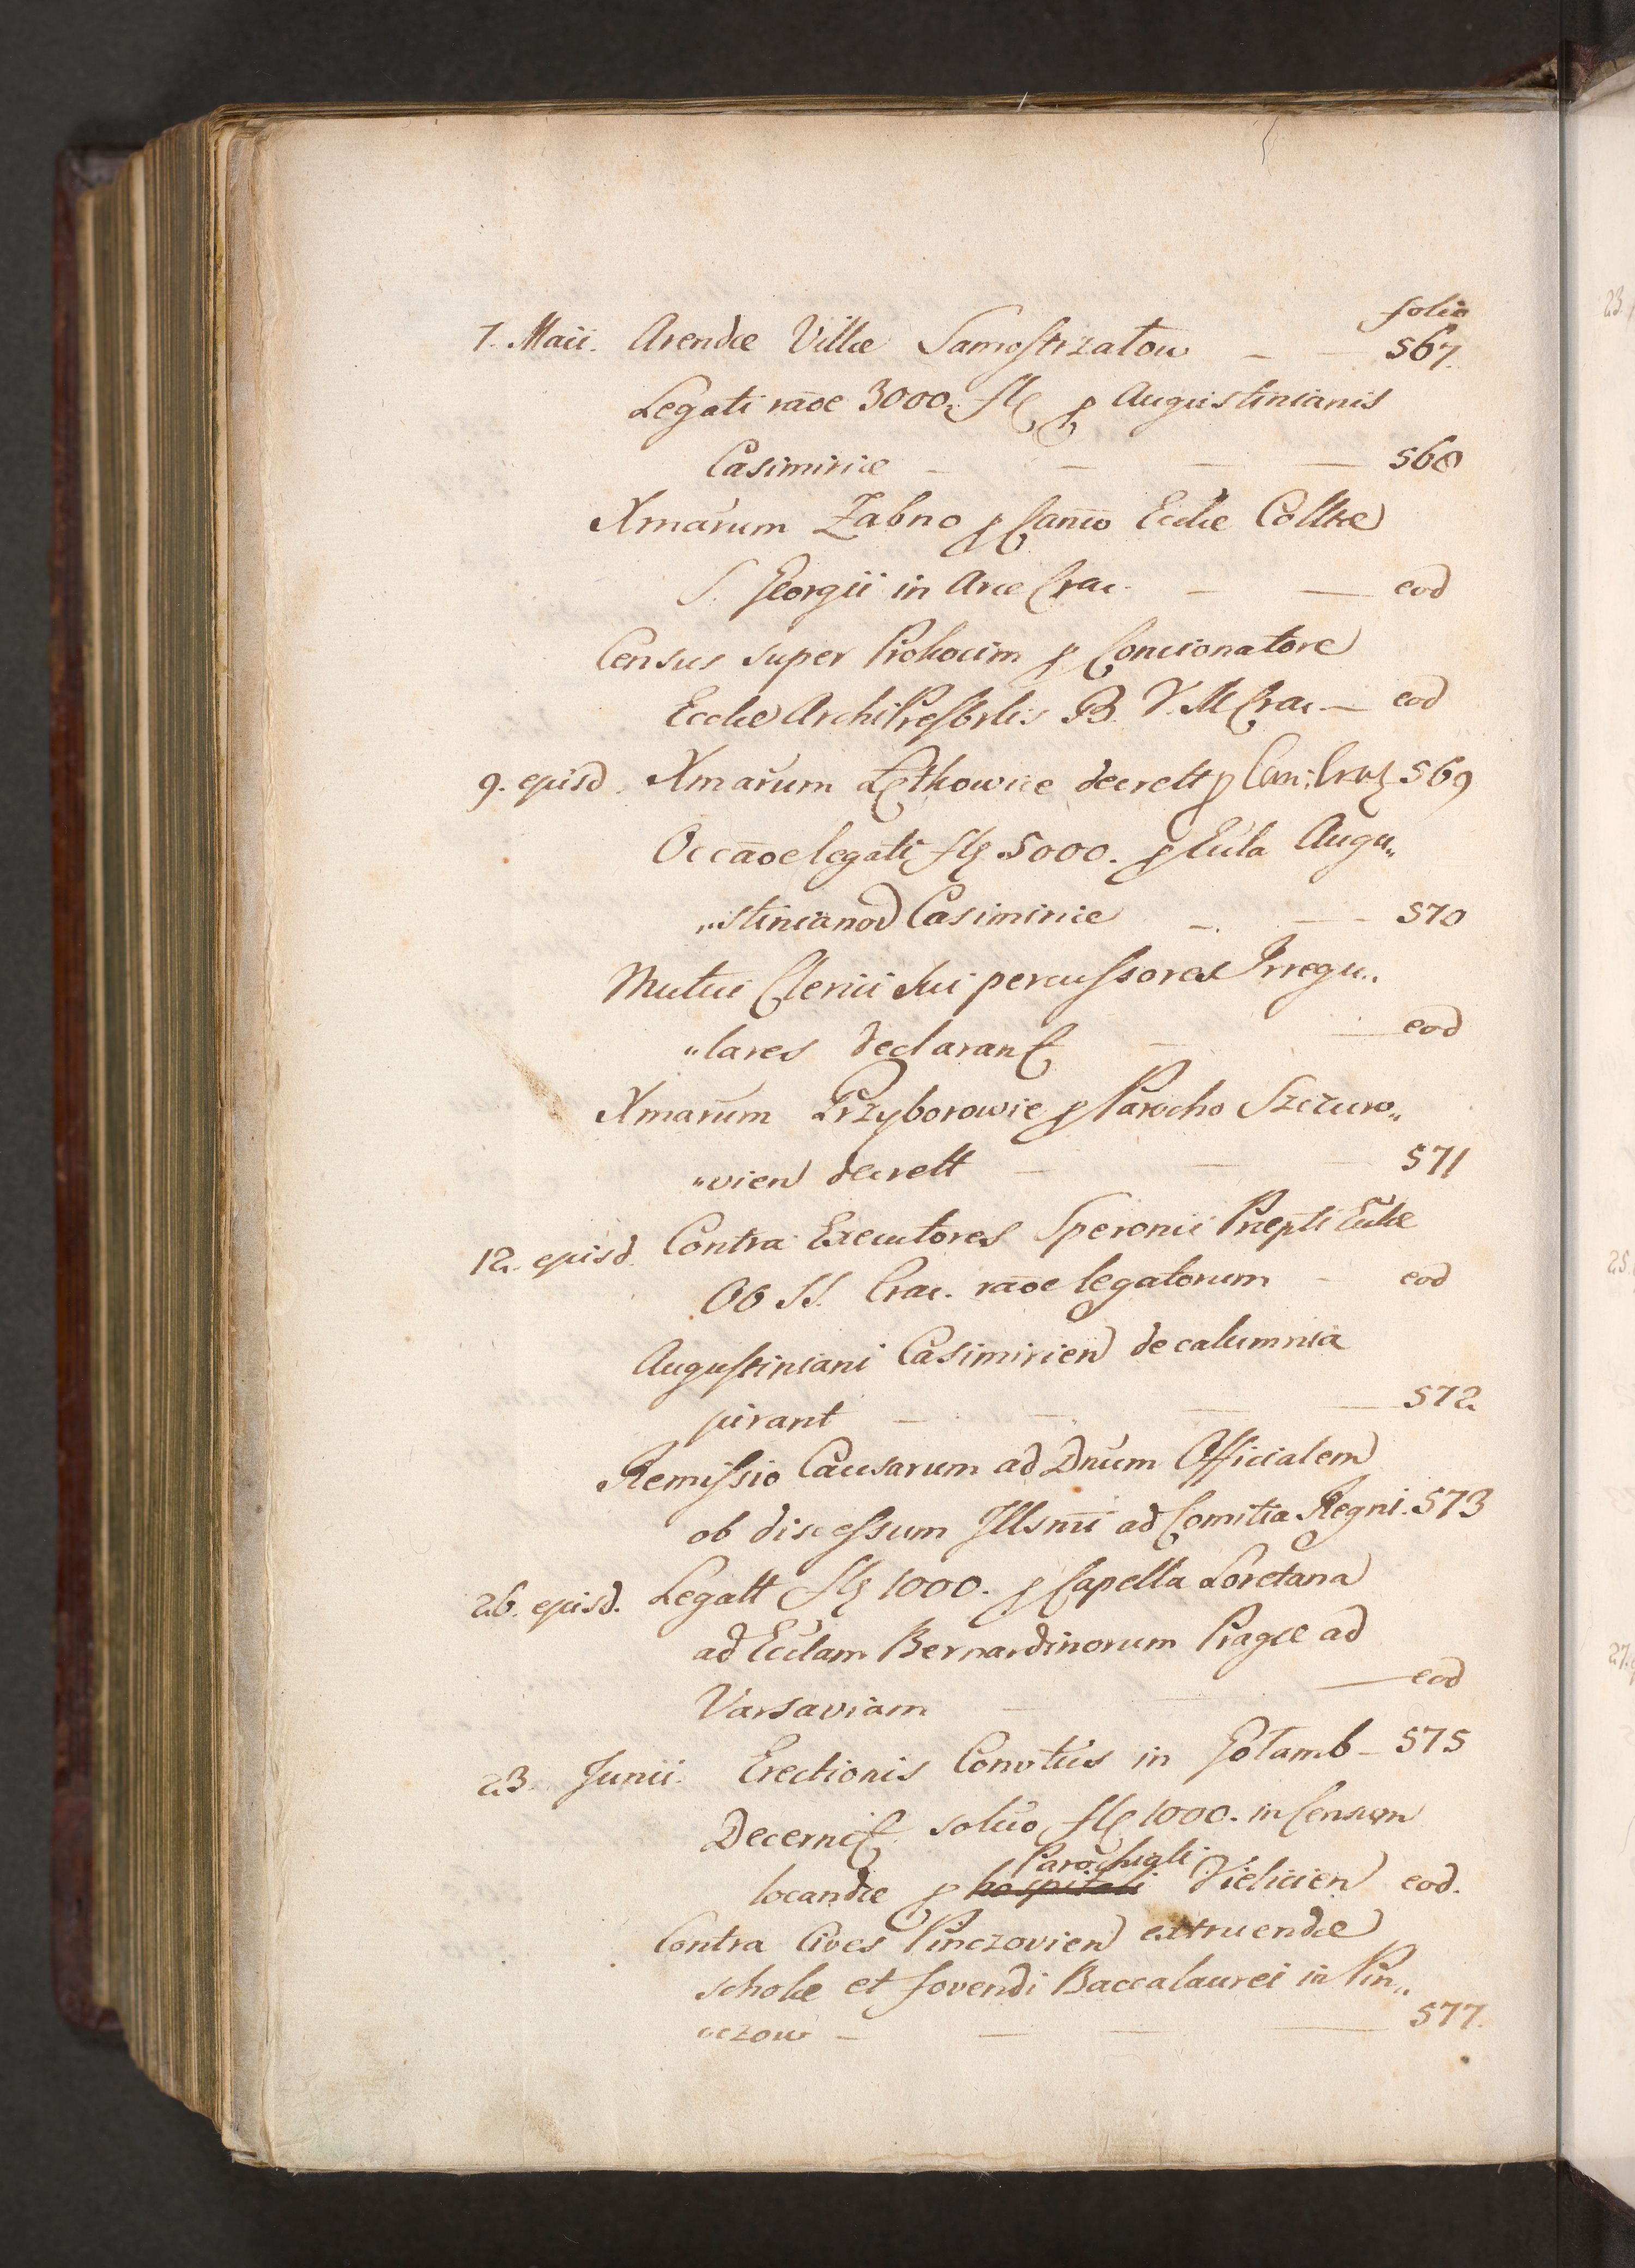 folio
7. Maii. Arendæ Villæ Samostrzatow — — 567.
Legati raōe 3000. fl. p Augustinianis
Casimiriæ — — — — 568
Xmarum Zabno p Canīo Ecclæ Colltæ
S. Georgii in Arce Crac. — — eod
Census super Prokocim p Concionatore
Ecclæ ArchiPresbrlis B. V. M Crac. — eod
9. ejusd. Xmarum Lętkowice decrett p Crac 569
Occāoe legati fl. 5000. p Eccla Augu„
„stinianoꝝ Casimiriæ — — 570
Mutui Clerici sui percussores Irregu„
„lares declarant — — eod
Xmarum Przyborowie p Parocho Szczuro„
„vien decrett — — — 571
12. ejusd. Contra Executores Speronii Præpti Ecclæ
OO SS. Crac. raōe legatorum — eod
Augustiniani Casimirien de calumnia
jurant — — — — 572
Remissio Causarum ad Dnum Officialem
ob discessum Illsmi ad Comitia Regni. 573
26. ejusd. Legatt fl. 1000. p Capella Loretana
ad Ecclam Bernardinorum Pragæ ad
Varsaviam — — — eod
23. Junii. Erectionis Convtus in Gotamb — 575
Decernit. solūo fl. 1000. in Censum
Parochiali
locandæ p hospitali Vielicien eod.
Contra Cives Pinczovien extruendæ
scholæ et fovendi Baccalaurei in Pin„
czow — — — — 577.